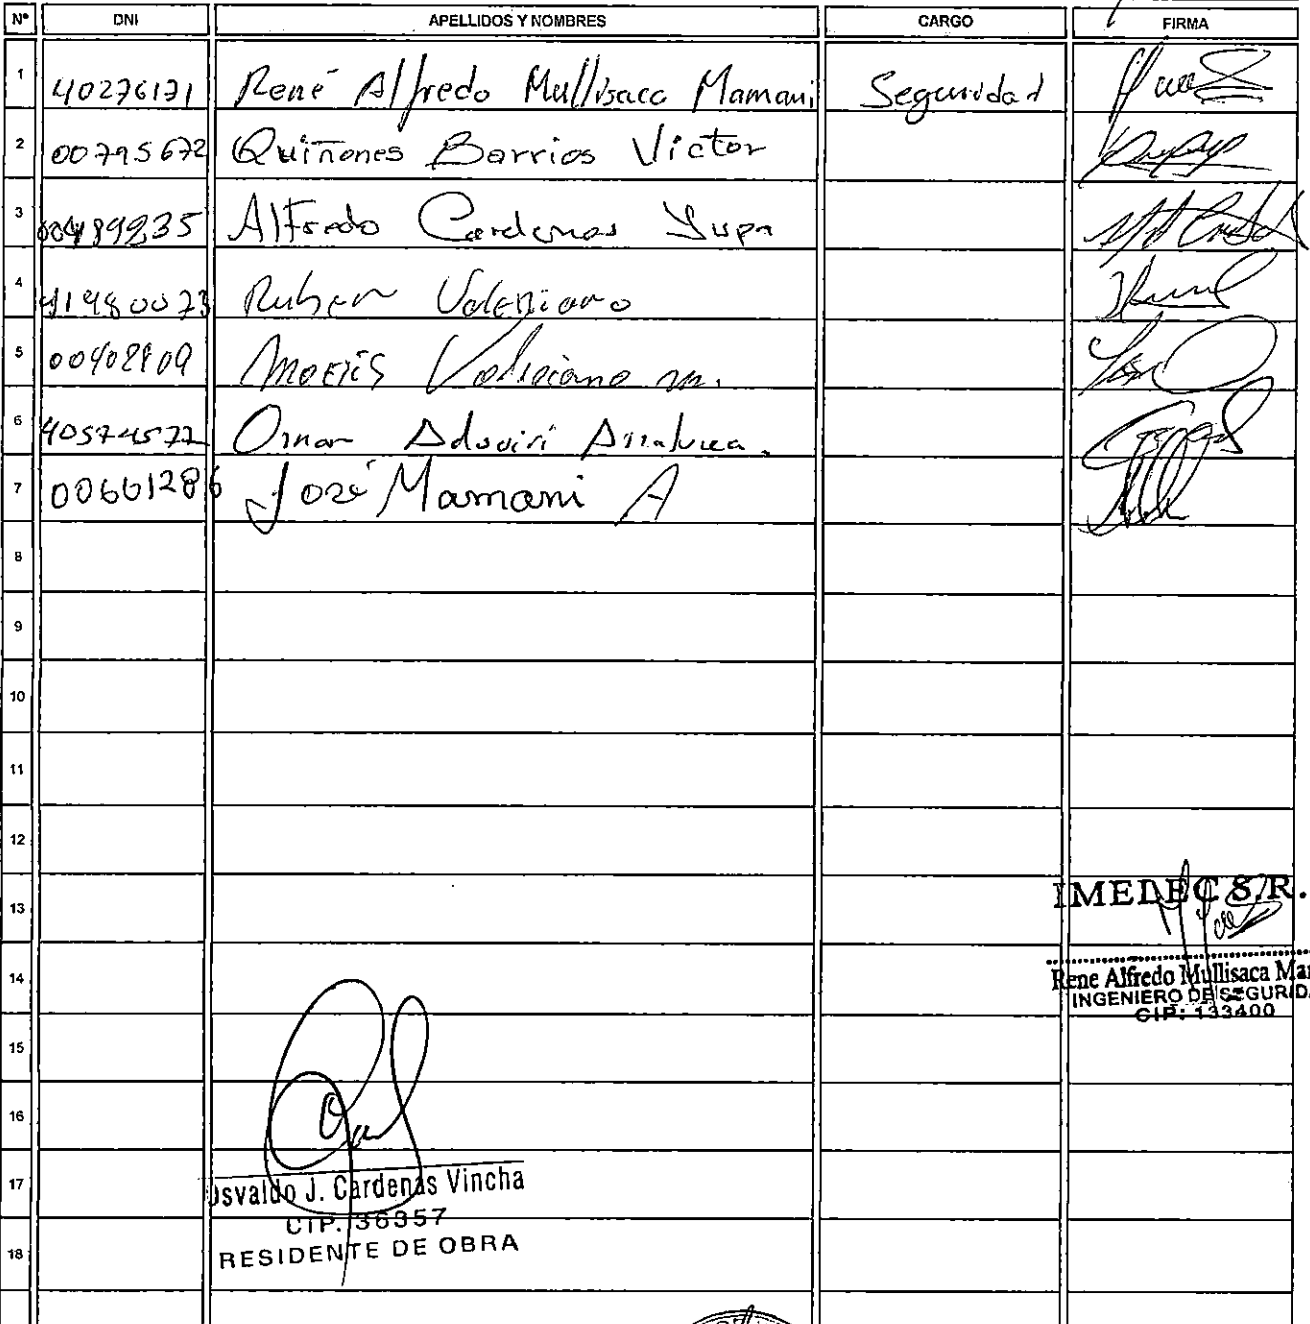 N° DNI APELLIDOS Y NOMBRES CARGO FIRMA
1 40276171 René Alfredo Mullisaca Mamani Seguridad
2 00795672 Quiñones Barrios Victor
3 00489235 Alfredo Cardenas Yupa
4 41980073 Ruben Valeriano
5 Valeriano m.
6 40574572 Omar Aduviri
7 00661286 José Mamani A
8
9
10
11
12
13
IMEDEC S.R.
14
Rene Alfredo Mullisaca Mam
INGENIERO DE SEGURIDA
CIP: 133400
15
16
17
Osvaldo J. Cardenas Vincha
CIP. 36357
18
RESIDENTE DE OBRA